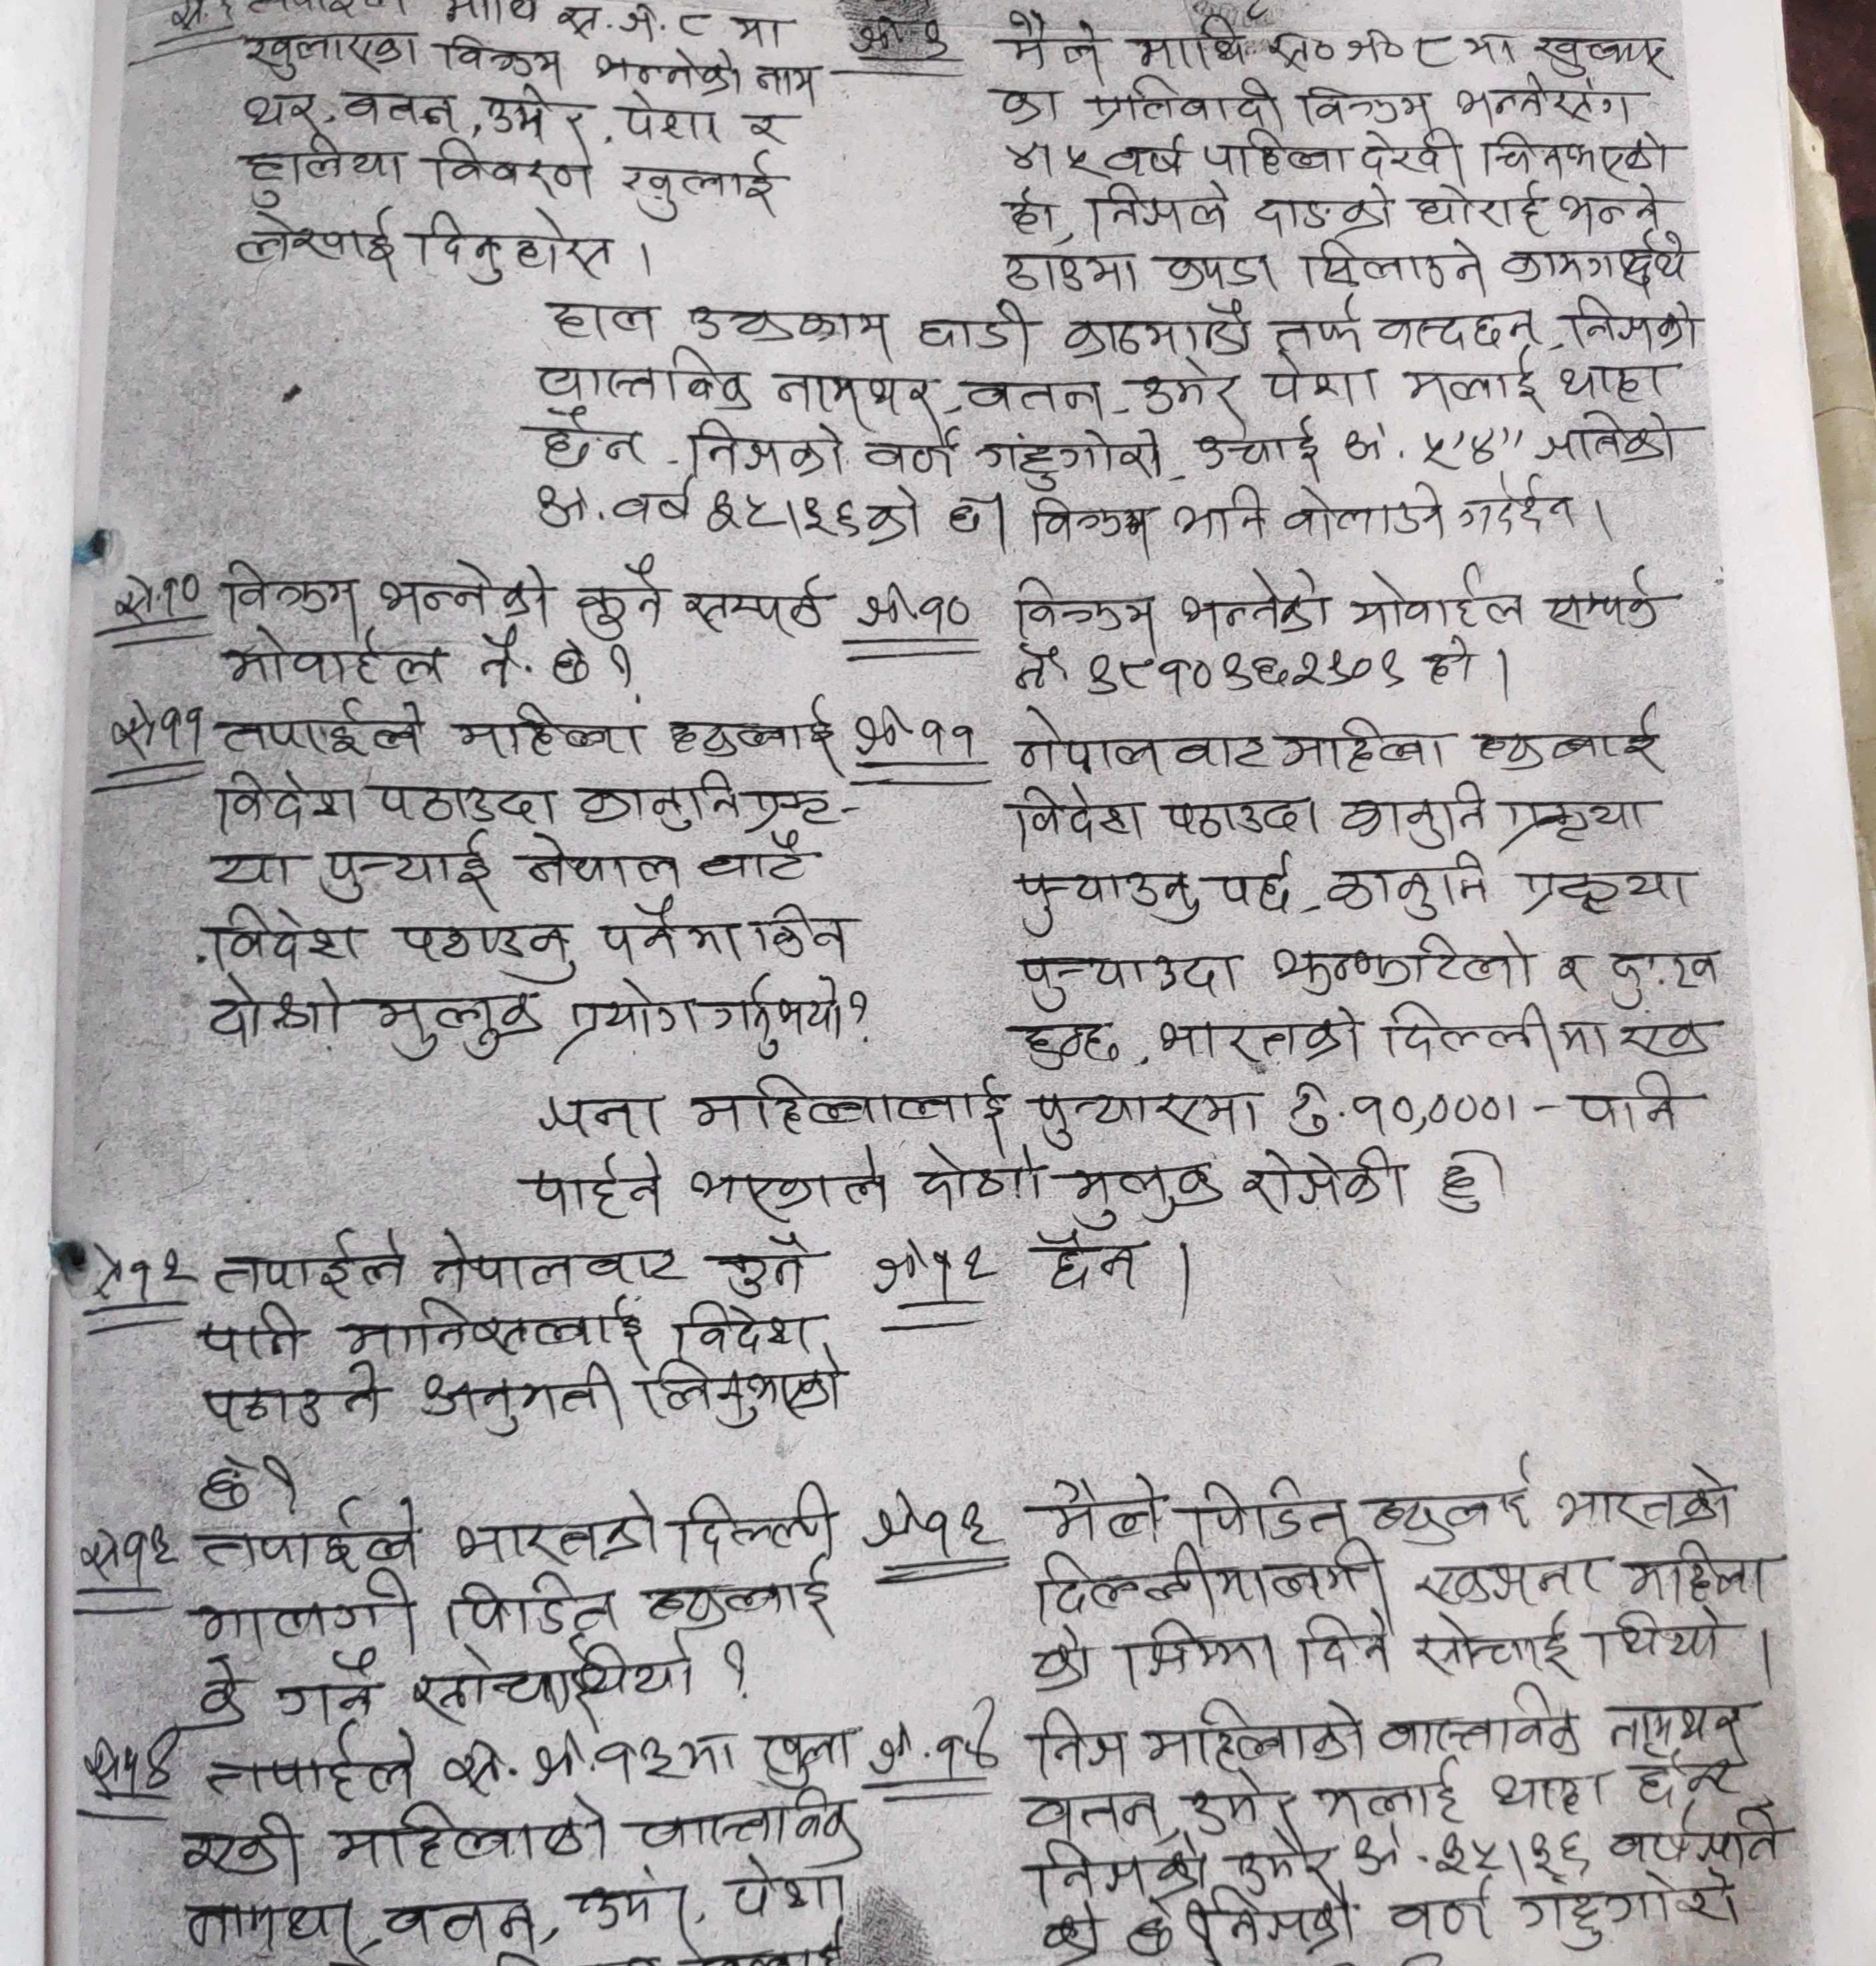 तपाईंले माथि स.ज.८ मा
खुलाएका विक्रम भन्नेको नाम
थर, वतन, उमेर, पेशा र
हुलिया विवरण खुलाई
लेखाई दिनुहोस ।
ज.९ मैले माथि स०ज०८ मा खुलाए
का प्रतिवादी विक्रम भन्नेसंग
४।५ वर्ष पहिला देखी चिनभएको
हो, निजले दाङको घोराई भन्ने
ठाउमा कपडा सिलाउने कामगर्दथे
हाल उक्तकाम छाडी काठमाडौ तर्फ वस्दछन्, निजको
वास्तविक नामथर, वतन, उमेर पेशा मलाई थाहा
छैन, निजको वर्ण गहुगोरो, उचाई अं. ५'४" जतिको
अं. वर्ष ३५।३६ को छ। विक्रम भनि वोलाउने गर्दछन ।
स.१० विक्रम भन्नेको कुनै सम्पर्क
मोवाईल नं. छ ?
ज.१० विक्रम भन्नेको मोवाईल सम्पर्क
हो ।
स.११ तपाईले महिला हरुलाई
विदेश पठाउदा कानुनि प्रकृ-
या पुऱ्याई नेपाल वाटै
विदेश पठाउनु पर्नेमा किन
दोश्रो मुलुक प्रयोग गर्नुभयो ?
ज.११ नेपाल वाट महिला हरुलाई
विदेश पठाउदा कानुनि प्रकृया
पुऱ्याउनु पर्छ, कानुनि प्रकृया
पुऱ्याउदा झन्झटिलो र दु:ख
हुन्छ, भारतको दिल्लीमा एक
जना महिलालाई पुऱ्याएमा रु.१०,०००।- पनि
पाईने भएकाले दोश्रो मुलुक रोजेको हु।
स.१२ तपाईले नेपालवाट कुनै
पनि मानिसलाई विदेश
पठाउने अनुमती लिनुभएको
छ ?
ज.१२ छैन ।
स.१३ तपाईले भारतको दिल्ली
मालगी पिडित हरुलाई
के गर्ने सोचाईथियो ?
ज.१३ मैले पिडित हरुलाई भारतको
दिल्लीमालगी एकजना महिला
को जिम्मा दिने सोचाई थियो ।
स.१४ तपाईले स. ज.१३मा खुला
एकी महिलाको वास्तविक
नामथर, वतन, उमेर, पेशा
ज.१४ निज महिलाको वास्तविक नामथर
वतन, उमेर मलाई थाहा छैन
निजको उमेर अं. ३५।३६ वर्षजति
को छ निजको वर्ण गहुगोरो